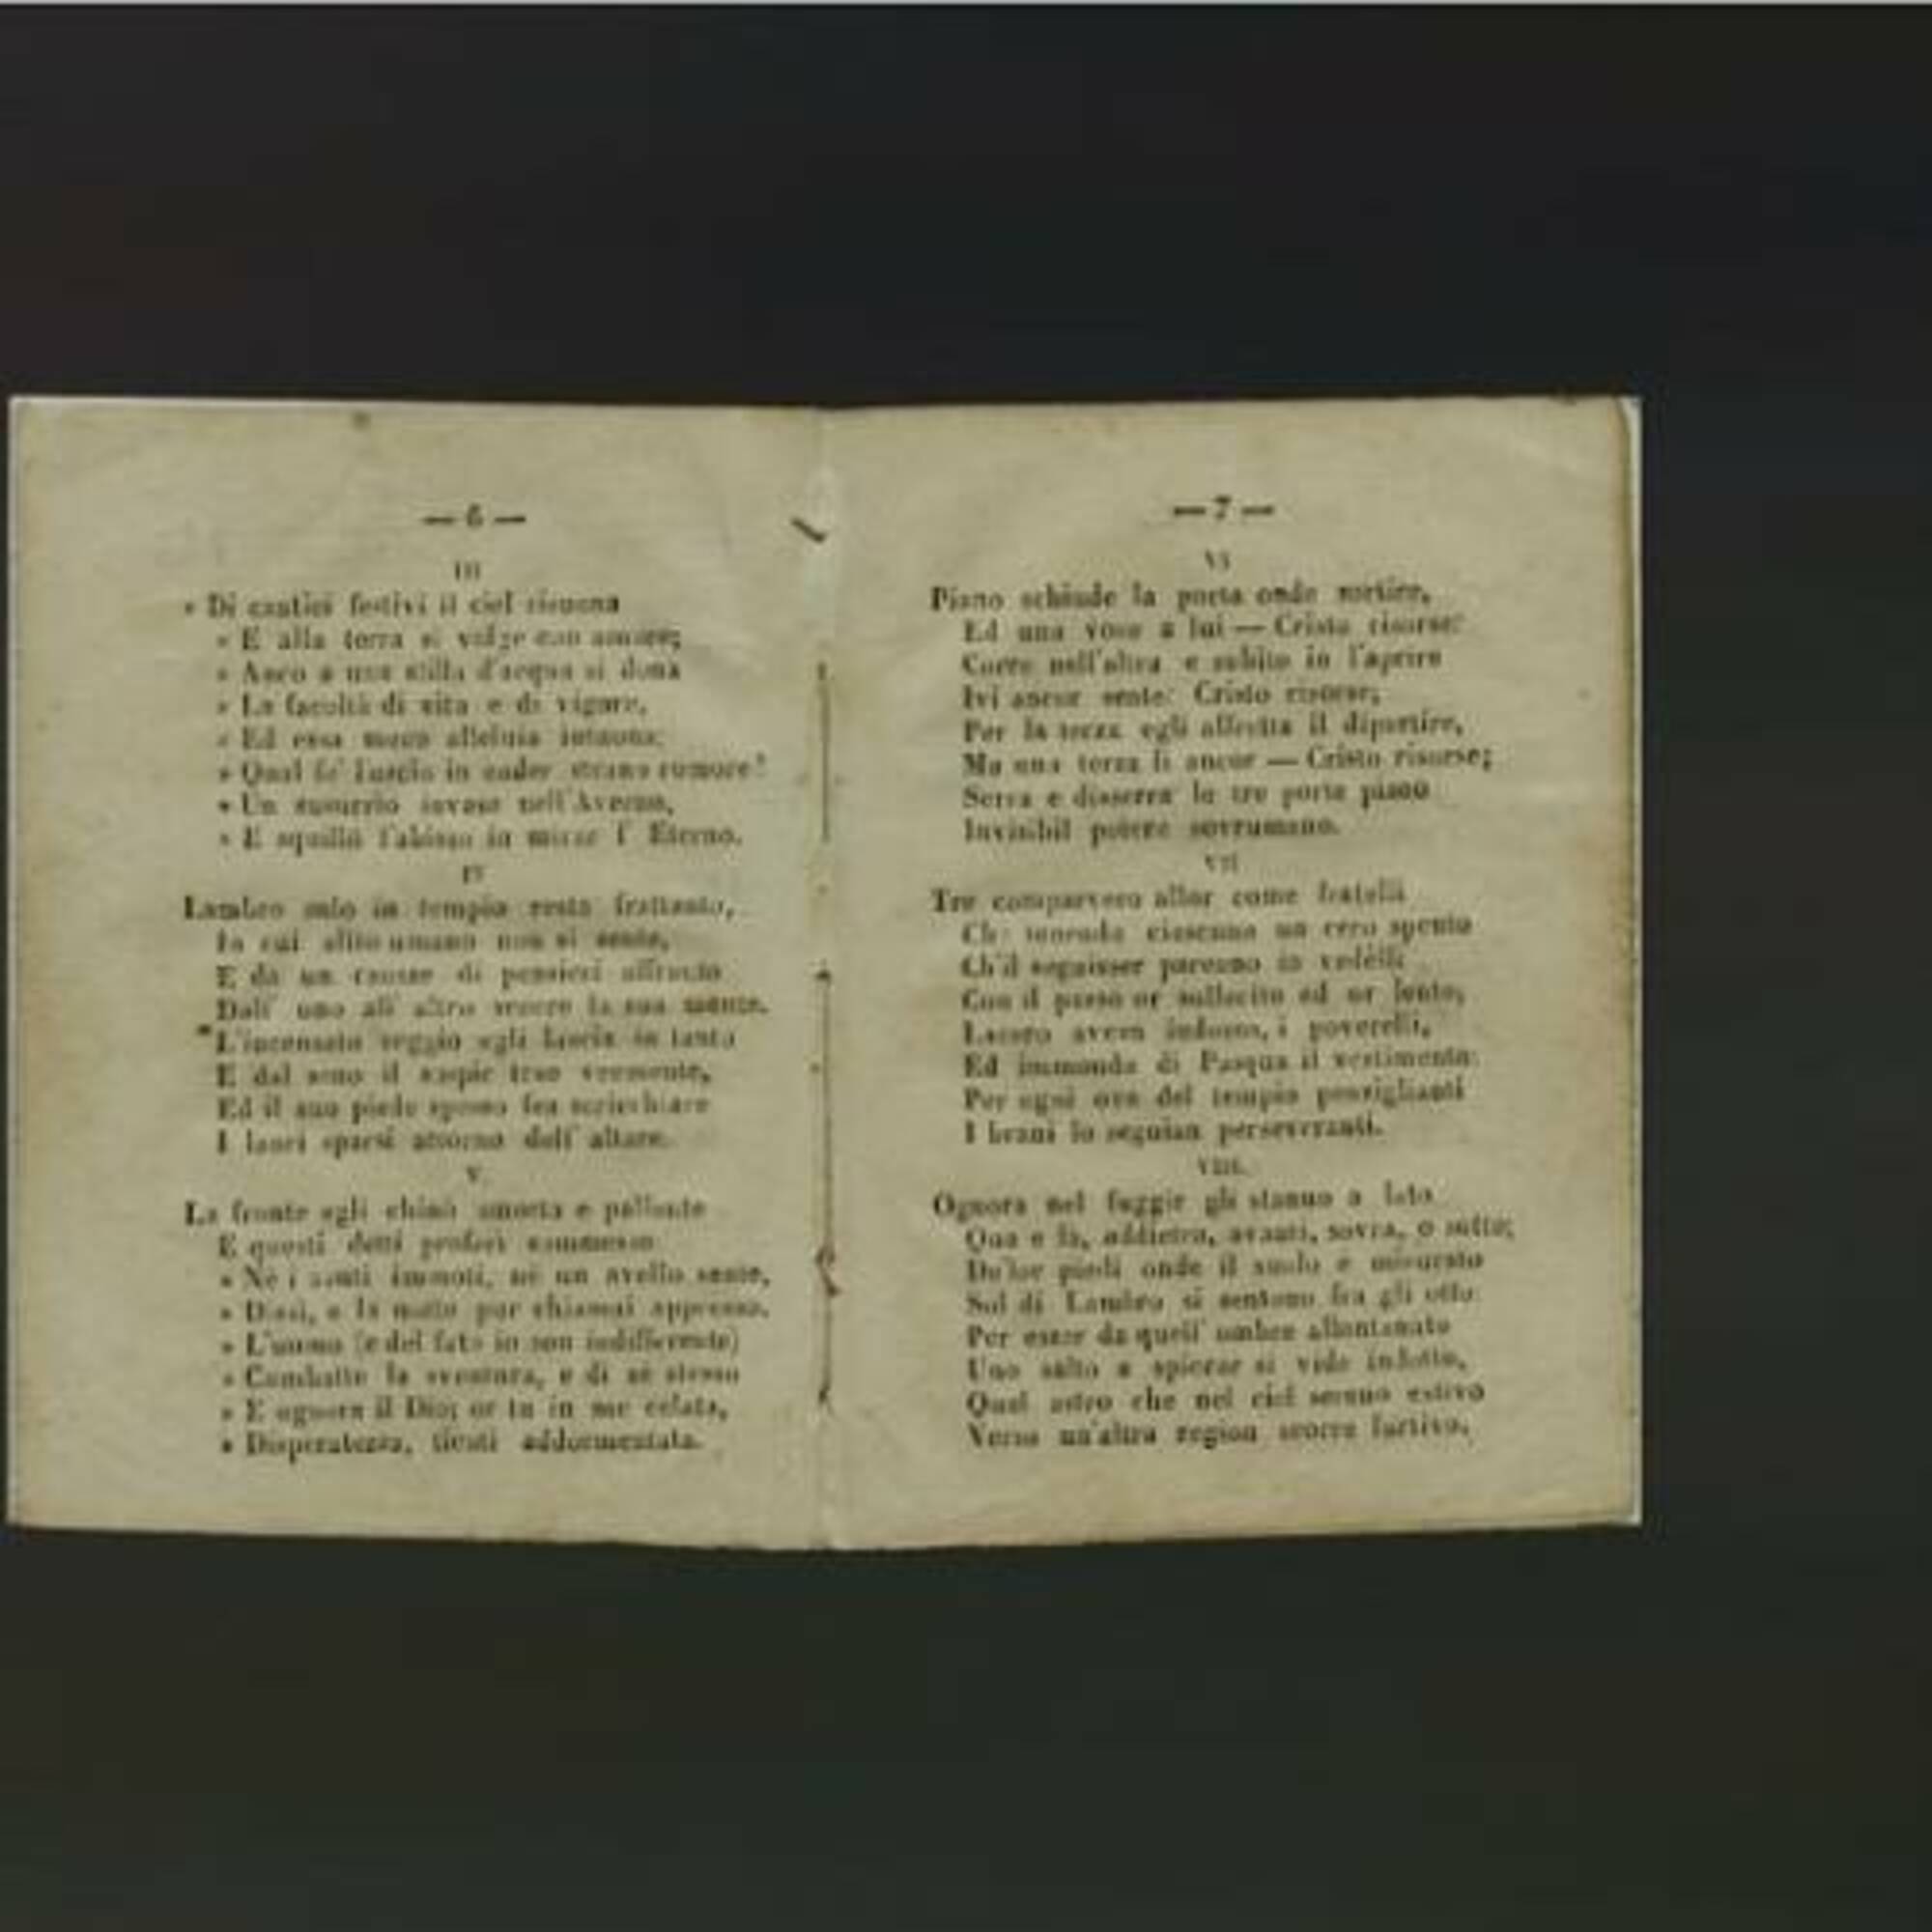 — 6 —
III
» Di cantici festivi il ciel risuona
» E alla terra si volge con amore;
» Anco a una stilla d'acqua si dona
» La facoltà di vita e di vigore,
» Ed essa meco alleluia intuona;
» Qual fe' l'uscio in cader strano rumore!
» Un susurrio invase nell'Averno,
» E squillò l'abisso in l' Eterno.
IV
Lambro solo in tempio resta frattanto,
In cui alito umano non si sente,
E da un di pensieri affranto
Dall' uno all' altro la sua mente.
L'incensato seggio egli lascia in tanto
E dal seno il trae
Ed il suo piede spesso fea scricchiare
I lauri sparsi attorno dell' altare.
V
La fronte egli chinò smorta e pallente
E questi detti proferì sommesso
» Nè i santi immoti, nè un avello sente,
» Dissi, e la notte pur chiamai appresso.
» L'uomo (e del fato io son indifferente)
» Combatte la sventura, e di sè stesso
» E ognora il Dio; or tu in me celata,
» Disperatezza, tienti addormentata.
— 7 —
VI
Piano schiude la porta onde sortire,
Ed una voce a lui — Cristo risorse:
Corre nell'altra e subito in l'aprire
Ivi ancor sente: Cristo risorse;
Per la terza egli affretta il dipartire,
Ma una terza lì ancor — Cristo risorse;
Serra e disserra le tre porte piano
Invisibil potere sovrumano.
VII
Tre comparvero allor come fratelli
Che tenendo ciascuno un cero spento
Ch'il seguisser pareano in vedelli
Con il passo or sollecito ed or lento,
Lacero avean indosso, i poverelli,
Ed immondo di Pasqua il vestimento:
Per ogni ove del tempio
I brani lo seguian perseveranti.
VIII.
Ognora nel fuggir gli stanno a lato
Qua e là, addietro, avanti, sovra, o sotto;
De'lor piedi onde il suolo è misurato
Sol di Lambro si sentono fra gli otto:
Per esser da quell' ombre allontanato
Uno salto a spiccar si vide indotto,
Qual astro che nel ciel sereno estivo
Verso un'altra region scorre furtivo.